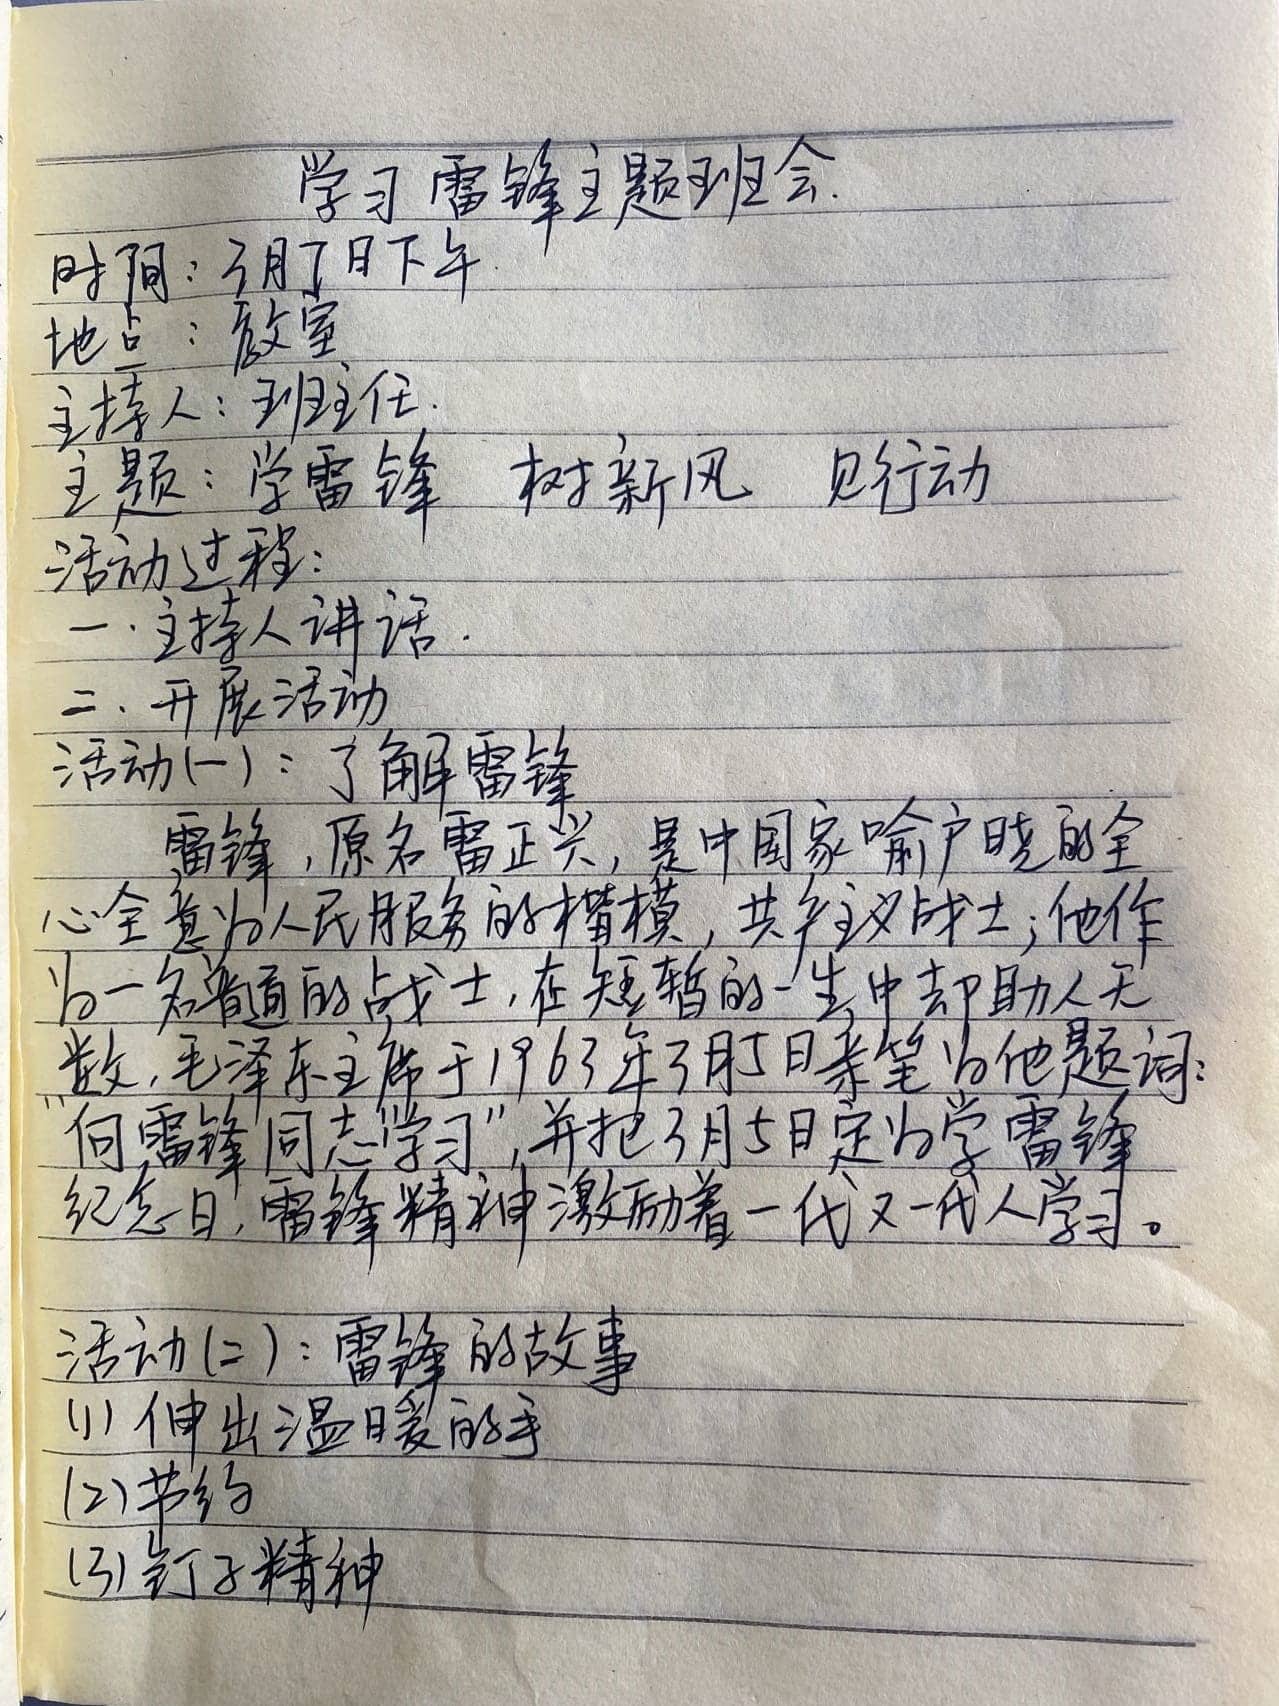 学习雷锋主题班会.
时间：3月5日下午.
地点：教室
主持人：班主任.
主题：学雷锋 树新风 见行动
活动过程：
一.主持人讲话.
二.开展活动
活动(一)：了解雷锋
雷锋,原名雷正兴,是中国家喻户晓的全
心全意为人民服务的楷模,共产主义战士;他作
为一名普通的战士,在短暂的一生中却助人无
数,毛泽东主席于1963年3月5日亲笔为他题词：
“向雷锋同志学习”,并把3月5日定为学雷锋
纪念日,雷锋精神激励着一代又一代人学习。
活动(二)：雷锋的故事
(1)伸出温暖的手
(2)节约
(3)钉子精神